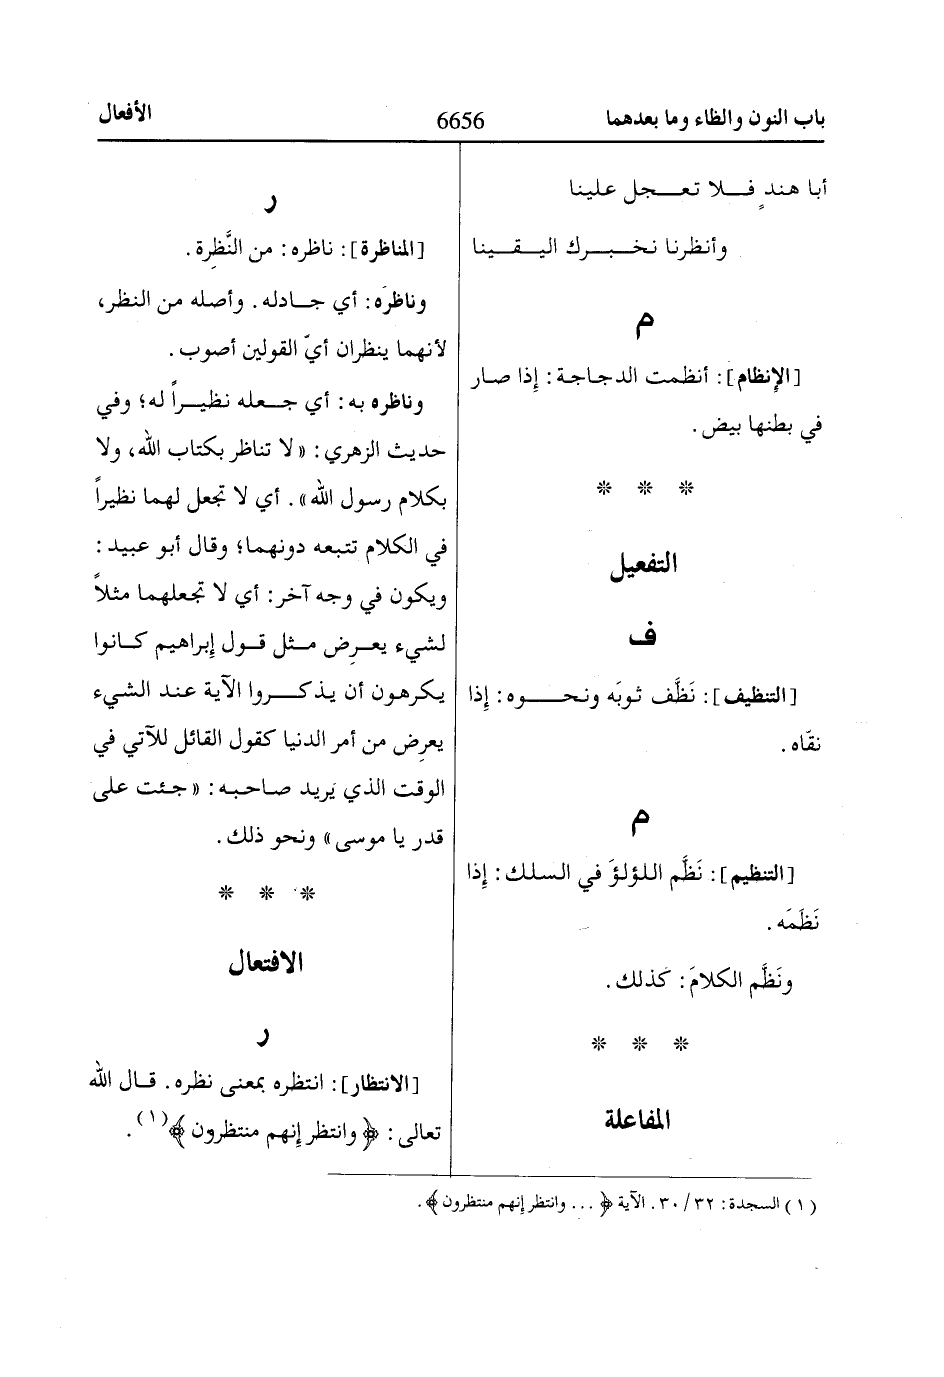 باب النون والظاء وما بعدهما 6656 الأفعال
أبا هندٍ فلا تعجل علينا
وأنظرنا نخبرك اليقينا
م
[الإنظام]: أنظمت الدجاجة: إذا صار
في بطنها بيض.
* * *
التفعيل
ف
[التنظيف]: نَظَّف ثوبَه ونحوه: إذا
نقّاه.
م
[التنظيم]: نَظَّم اللؤلؤَ في السلك: إذا
نَظَمَه.
ونَظَّم الكلامَ: كذلك.
* * *
المفاعلة
ر
[المناظرة]: ناظره: من النَّظِرة.
وناظرَه: أي جادله. وأصله من النظر،
لأنهما ينظران أيّ القولين أصوب.
وناظره به: أي جعله نظيراً له؛ وفي
حديث الزهري: «لا تناظر بكتاب الله، ولا
بكلام رسول الله». أي لا تجعل لهما نظيراً
في الكلام تتبعه دونهما؛ وقال أبو عبيد:
ويكون في وجه آخر: أي لا تجعلهما مثلاً
لشيء يعرِض مثل قول إبراهيم كانوا
يكرهون أن يذكروا الآية عند الشيء
يعرِض من أمر الدنيا كقول القائل للآتي في
الوقت الذي يَريد صاحبه: «جئت على
قدر يا موسى» ونحو ذلك.
* * *
الافتعال
ر
[الانتظار]: انتظره بمعنى نظره. قال الله
تعالى: ﴿وانتظر إنهم منتظرون﴾(١).
(١) السجدة: ٣٢/ ٣٠. الآية ﴿... وانتظر إنهم منتظرون﴾.